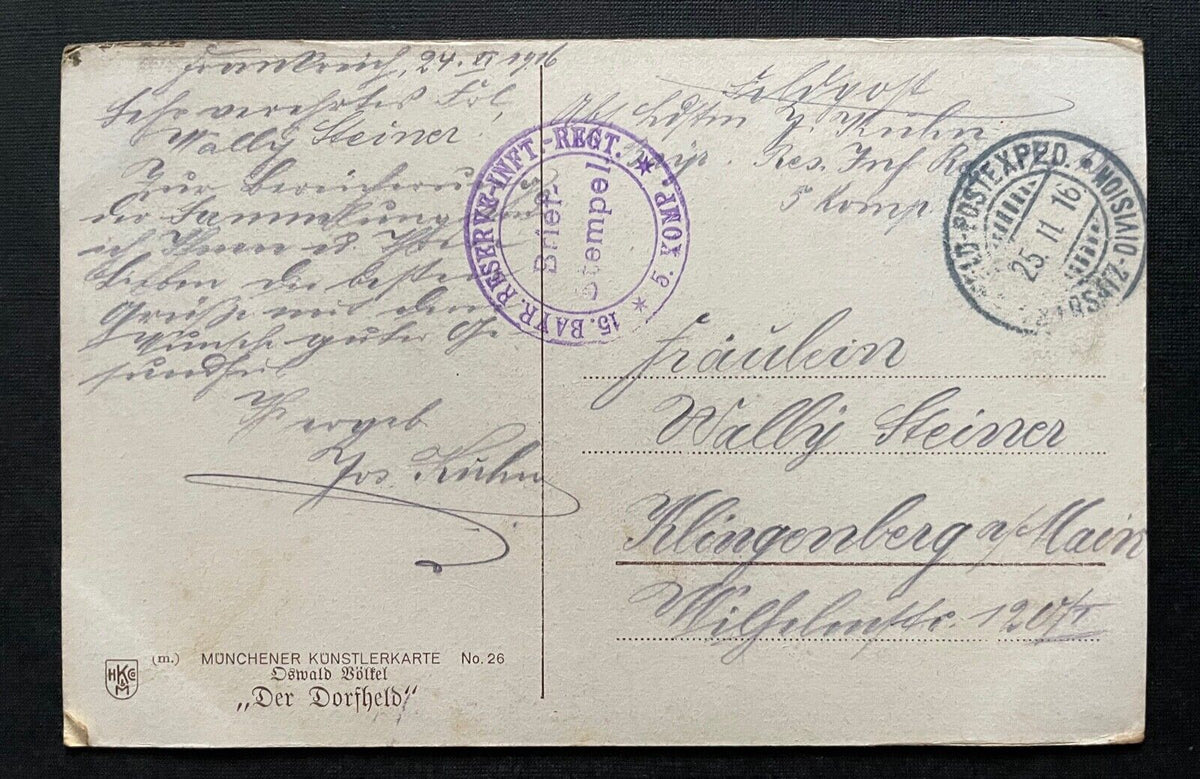 Frankreich, 24. XI 1916
Sehr verehrtes Frl.
Wally Steiner!
Zur Bereicherung
der Sammlung
ich Ihnen
Lieben die besten
Grüße mit dem
Wunsche guter Ge-
sundheit
Ihr ergeb
Jos. Kuhn
Feldpost
Abs. Ldstm J. Kuhn
Res. Inf. R
5 Komp.
15. BAYR. RESERVE-INFT.-REGT. * 5. KOMP. *
Brief-
Stempel
FELD-POSTEXPED. * ERSATZ-DIVISION
25. 11 16
Fräulein
Wally Steiner
Klingenberg a/Main
Wilhelmstr. 120 1/1
HKCo
M
(m.) MÜNCHENER KÜNSTLERKARTE No. 26
Oswald Völkel
„Der Dorfheld“